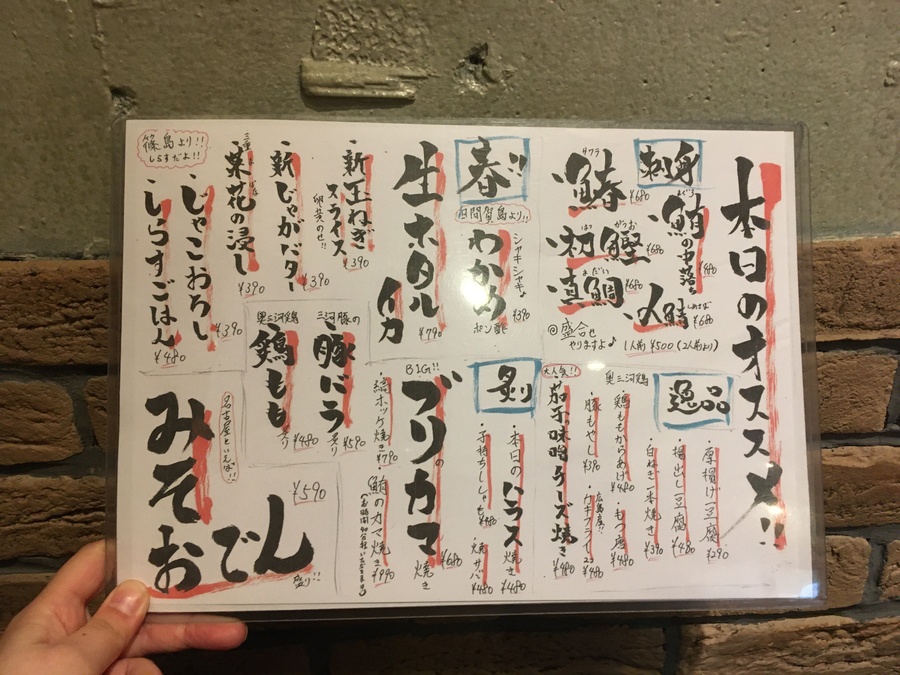 本日のオススメ!!
刺身
まぐろ
鮪の中落ち
¥480
しめさば
〆鯖
¥680
サワラ
鰆
¥680
はつ がつお
初鰹
¥680
まだい
真鯛
¥680
@盛合せ
やりますよ♪
1人前 ¥500 (2人前より)
春!!
日間賀島より!!
シャキシャキ♪
わかめ
ポン酢
¥390
生ホタルイカ
¥790
・新玉ねぎ
スライス
卵黄のせ!!
¥390
・新じゃがバター
¥390
・菜花の浸し
¥390
篠島より!!
しらすだよ!!
・じゃこおろし
¥390
・しらすごはん
¥480
逸品
・厚揚げ豆腐
¥290
・揚出し豆腐
¥480
・白ねぎ一本焼き
¥390
奥三河鶏
鶏ももからあげ
¥480
・もつ煮
¥480
広島産!!
・カキフライ
¥480
・豚もやし
¥390
大人気!!
・茄子の味噌チーズ焼き
¥480
炙り
・本日のハラス焼き
¥480
・子持ちししゃも
¥480
・焼サバ
¥480
BIG!!
ブリのカマ焼き
¥680
・縞ホッケ焼き
¥790
・鮪のカマ焼き
¥990
三河豚の
豚バラ
¥590
奥三河鶏
鶏もも
¥480
名古屋といえば!!
みそおでん
¥590
盛り!!